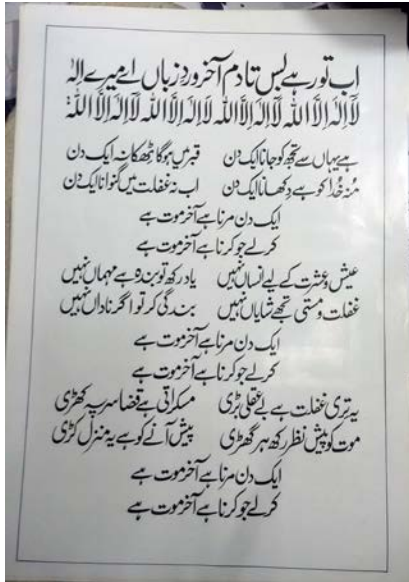 اب تو رہے بس تا دمِ آخر وردِ زباں اے میرے الٰہ
لَآ اِلٰہَ اِلَّا اللّٰہ لَآ اِلٰہَ اِلَّا اللّٰہ لَآ اِلٰہَ اِلَّا اللّٰہ لَآ اِلٰہَ اِلَّا اللّٰہ
ہے یہاں سے تجھ کو جانا ایک دن قبر میں ہوگا ٹھکانہ ایک دن
مُنہ خُدا کو ہے دِکھانا ایک دن اب نہ غفلت میں گنوانا ایک دن
ایک دن مرنا ہے آخر موت ہے
کرلے جو کرنا ہے آخر موت ہے
عیش و عشرت کے لیے انساں نہیں یاد رکھ تو بندہ ہے مہماں نہیں
غفلت و مستی تجھے شایاں نہیں بندگی کر تو اگر ناداں نہیں
ایک دن مرنا ہے آخر موت ہے
کرلے جو کرنا ہے آخر موت ہے
یہ تری غفلت ہے بے عقلی بڑی مسکراتی ہے قضا سر پہ کھڑی
موت کو پیش نظر رکھ ہر گھڑی پیش آنے کو ہے یہ منزل کڑی
ایک دن مرنا ہے آخر موت ہے
کرلے جو کرنا ہے آخر موت ہے